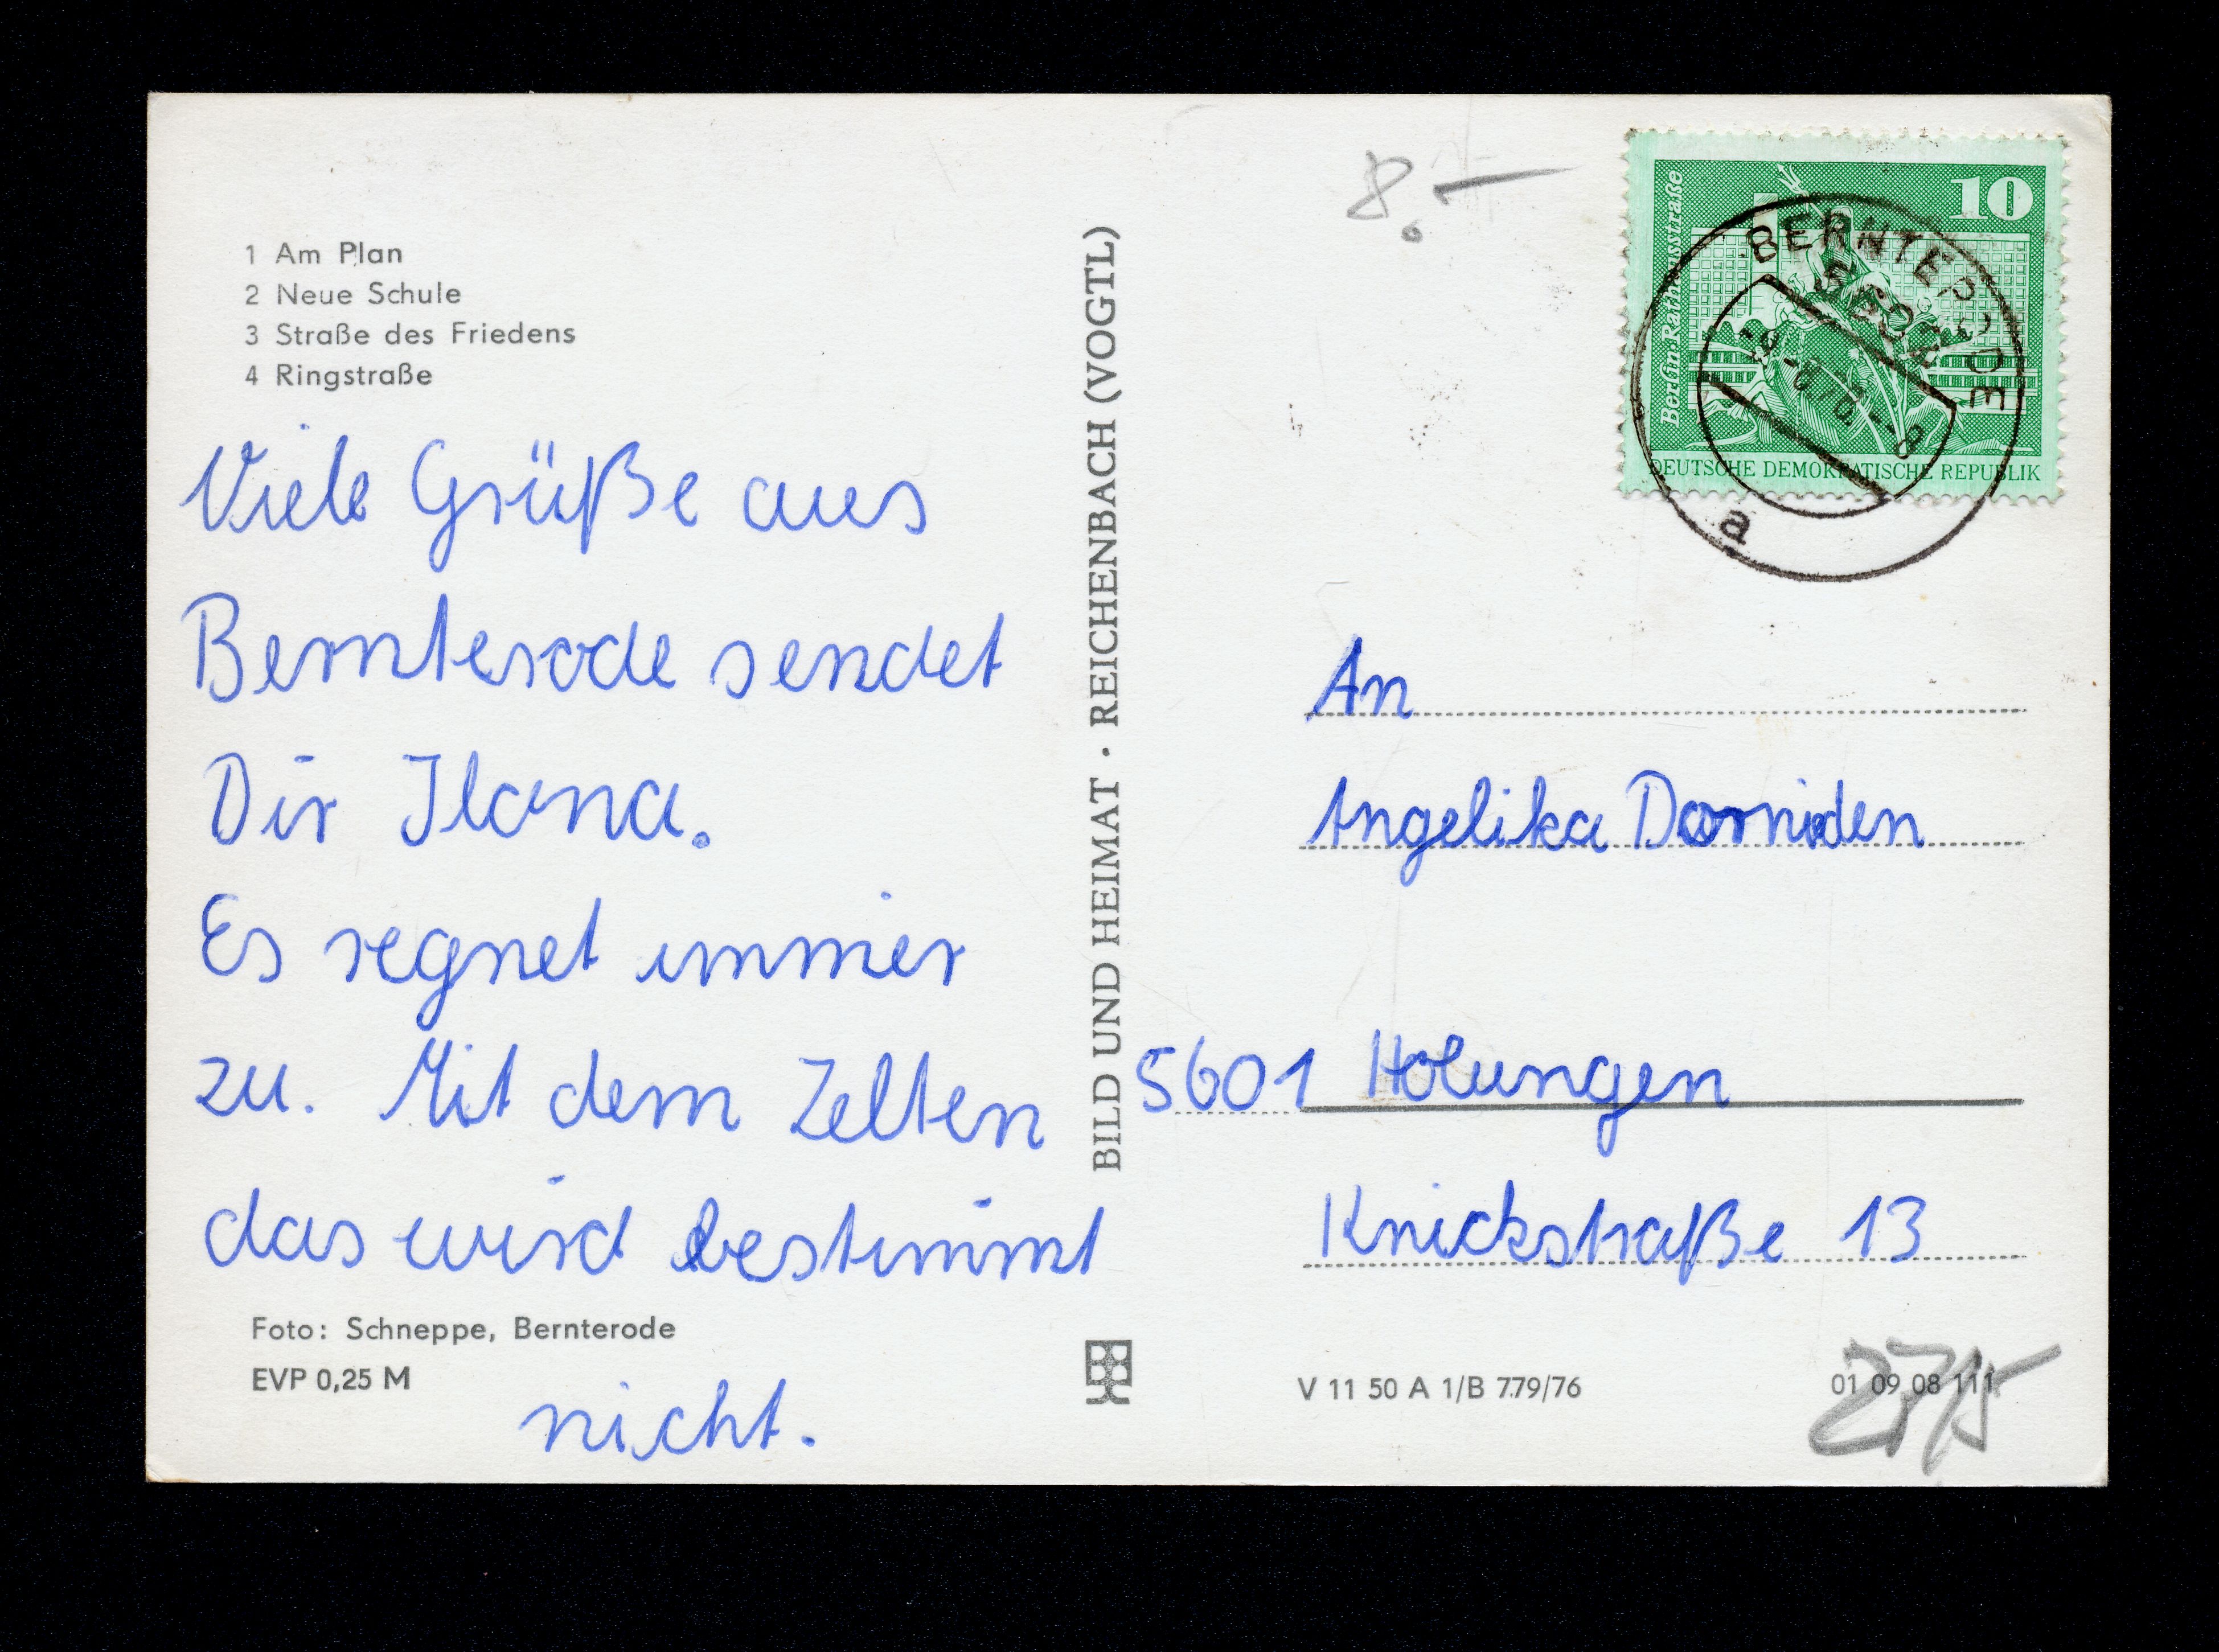 1 Am Plan
2 Neue Schule
3 Straße des Friedens
4 Ringstraße
Viele Grüße aus
Bernterode sendet
Dir Ilona.
Es regnet immer
zu. Mit dem Zelten
das wird bestimmt
nicht.
Foto: Schneppe, Bernterode
EVP 0,25 M
BILD UND HEIMAT · REICHENBACH (VOGTL)
8.–
10
Berlin · Rathausstraße
DEUTSCHE DEMOKRATISCHE REPUBLIK
BERNTERODE
5602
a
An
Angelika
5601 Holungen
Knickstraße 13
V 11 50 A 1/B 779/76
01 09 08 111